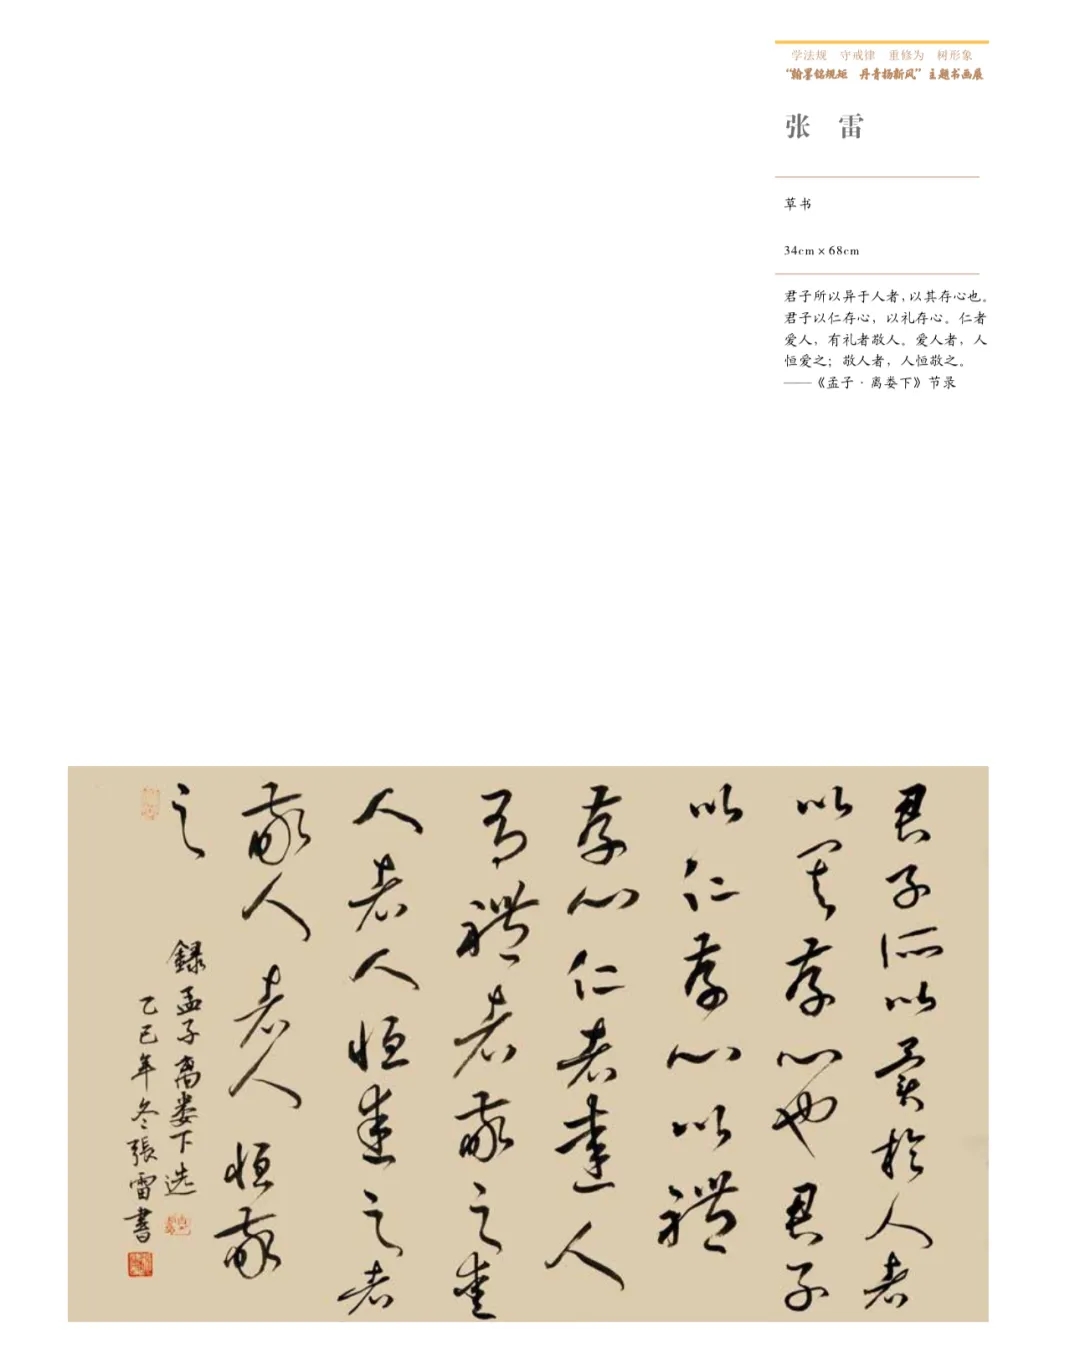 学法规 守戒律 重修为 树形象
“翰墨铭规矩 丹青扬新风”主题书画展
张 雷
草书
34cm×68cm
君子所以异于人者，以其存心也。
君子以仁存心，以礼存心。仁者
爱人，有礼者敬人。爱人者，人
恒爱之；敬人者，人恒敬之。
——《孟子·离娄下》节录
君子所以異於人者
以其存心也君子
以仁存心以禮
存心仁者愛人
有禮者敬之愛
人者人恒愛之者
敬人者人恒敬
之
録孟子离娄下选
乙巳年冬張雷書